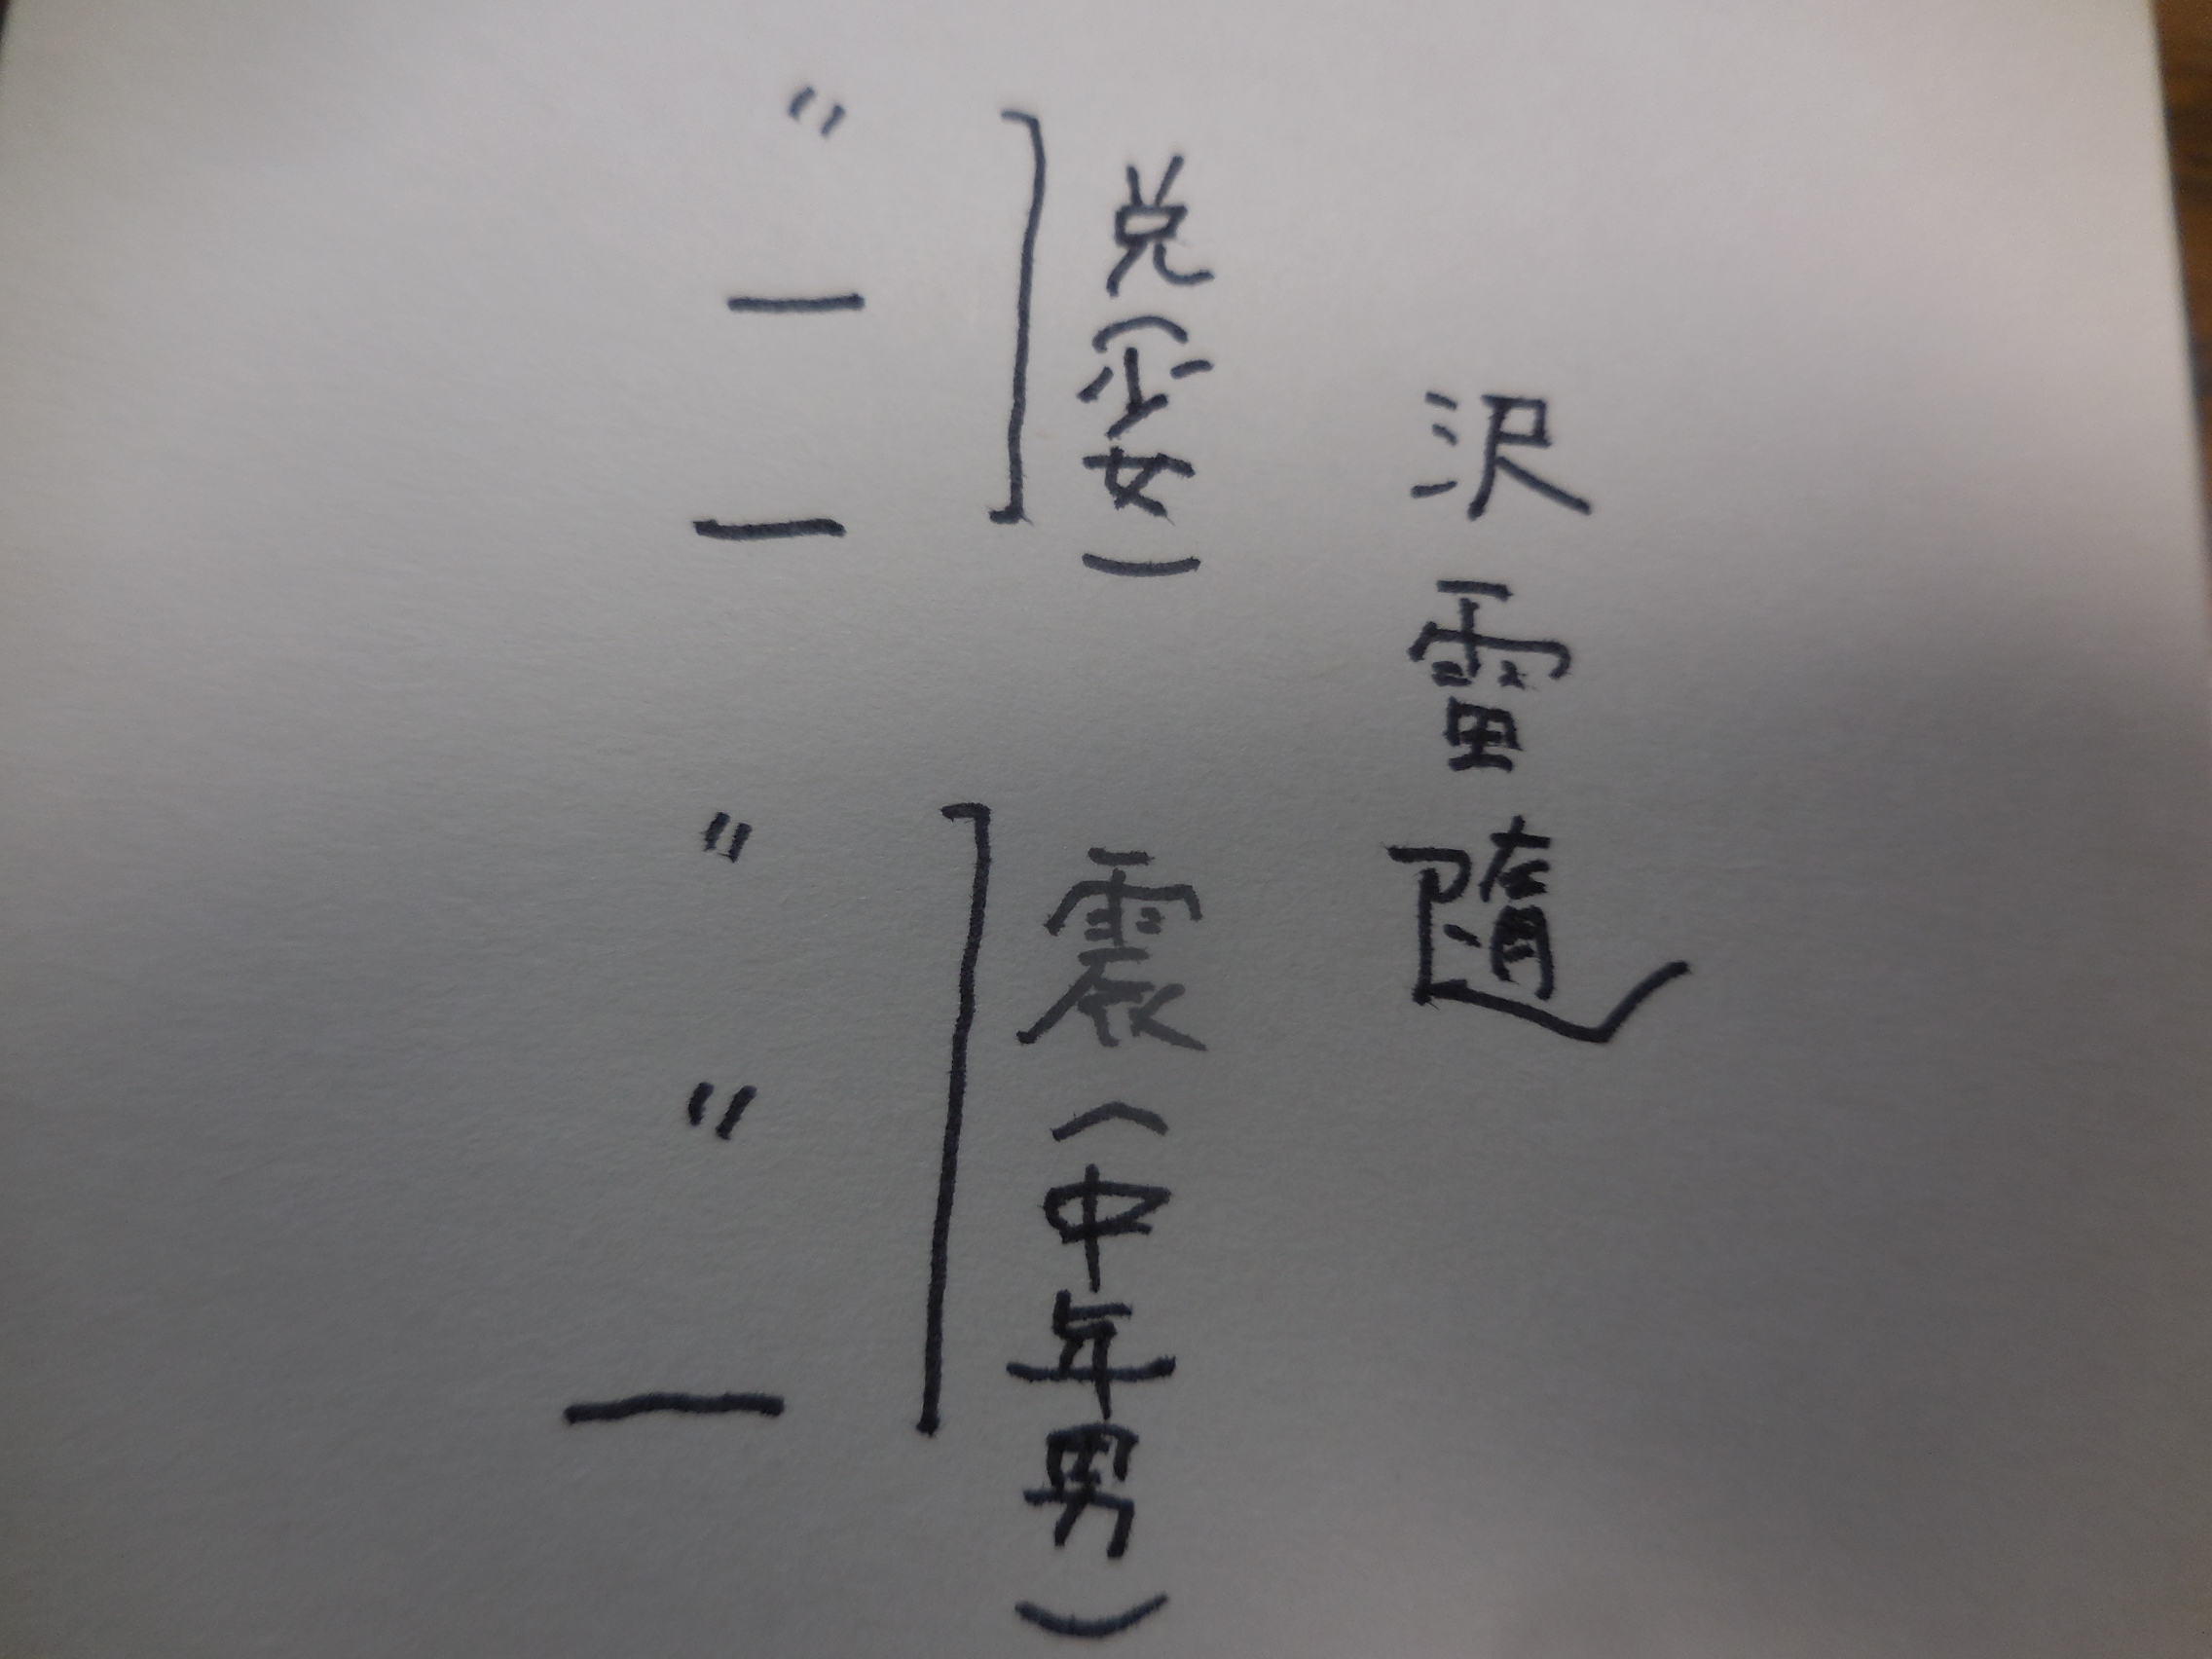 沢雷隨
兌(少女)
震(中年男)
〃
一
一
〃
〃
一